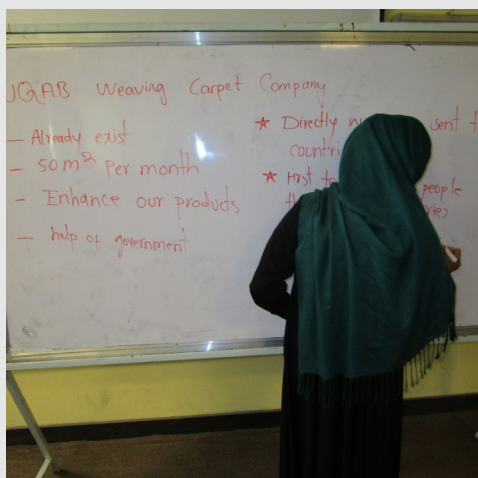 UQAB Weaving Carpet Company
- Already exist
- 50 m² per month
- Enhance our products
- help of government
★ Directly sent
countri
★ First to people